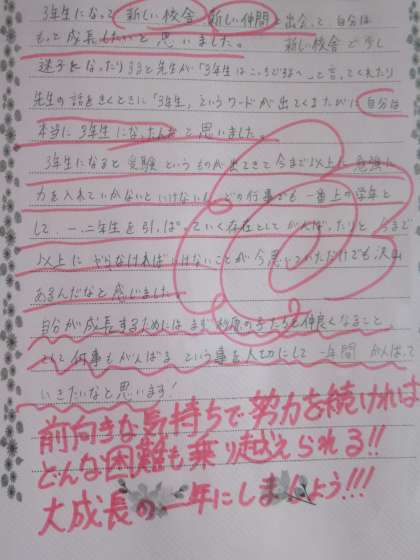 3年生になって 新しい校舎 新しい仲間と出会って 自分は
もっと成長したいと思いました。 新しい校舎で少し
迷子になったりすると先生が「3年生はこっちですよ〜」って言ってくれたり
先生の話をきくときに「3年生」というワードが出てくるたびに自分は
本当に3年生になったんだと思いました。
3年生になると受験というものが出てきて今まで以上に勉強に
力を入れていかないといけないし、どの行事でも一番上の学年と
して、一、二年生を引っぱっていく存在としてがんばったりと今まで
以上にやらなければいけないことが今思いついただけでも沢山
あるんだなと感じました。
自分が成長するためにはまず の子たちと仲良くなること、
そして何事もがんばるという事を大切にして一年間がんばって
いきたいなと思います!
前向きな気持ちで努力を続ければ
どんな困難も乗り越えられる!!
大成長の一年にしましょう!!!